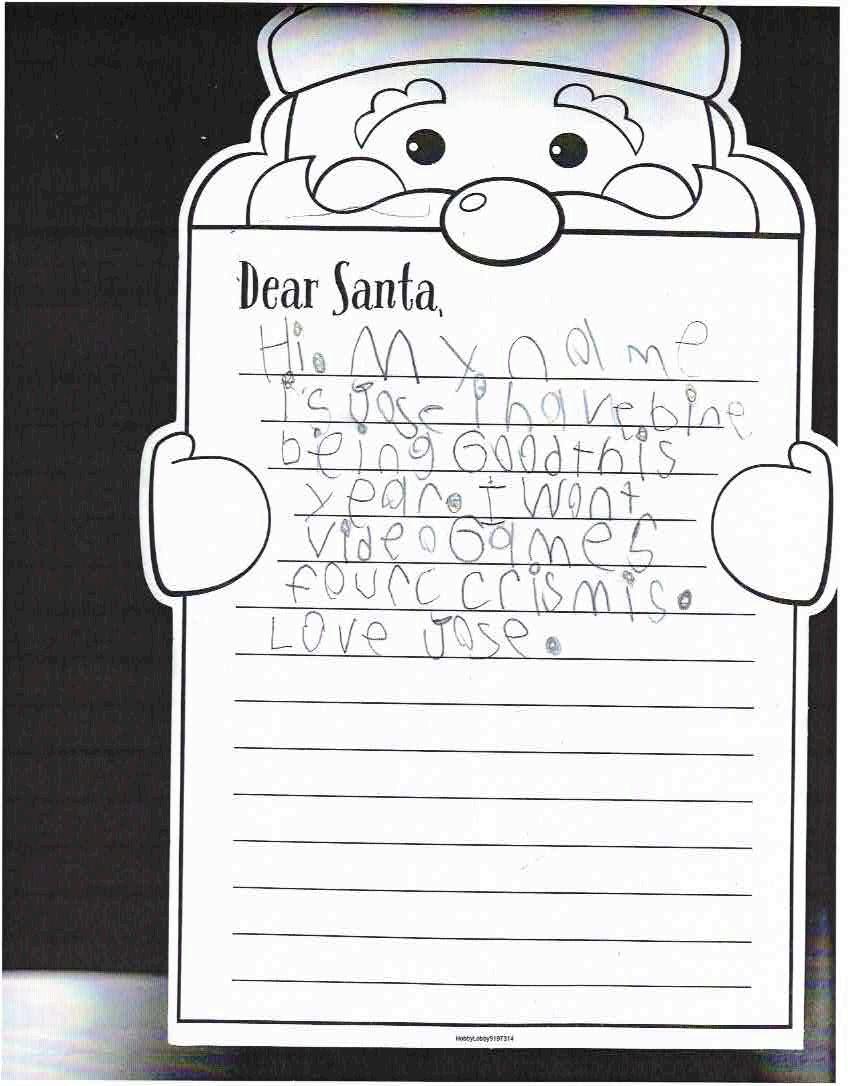 Dear Santa,
Hi. My name
is Jose I have bine
being Good this
year. I Want
video Games
fourc crismis.
Love Jose.
HobbyLobby5197314